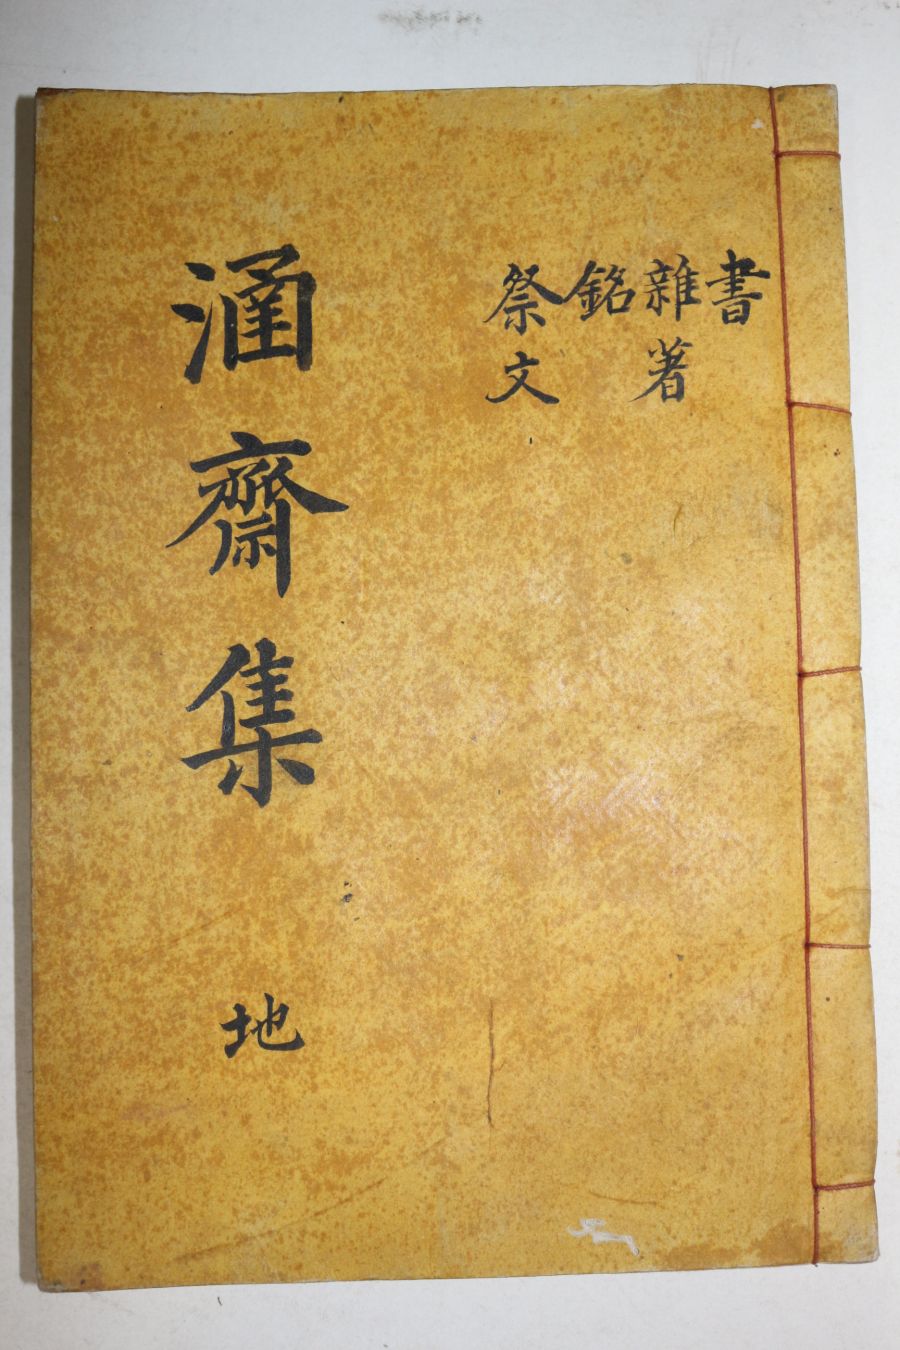 書
雜著
銘
祭文
涵齋集
地